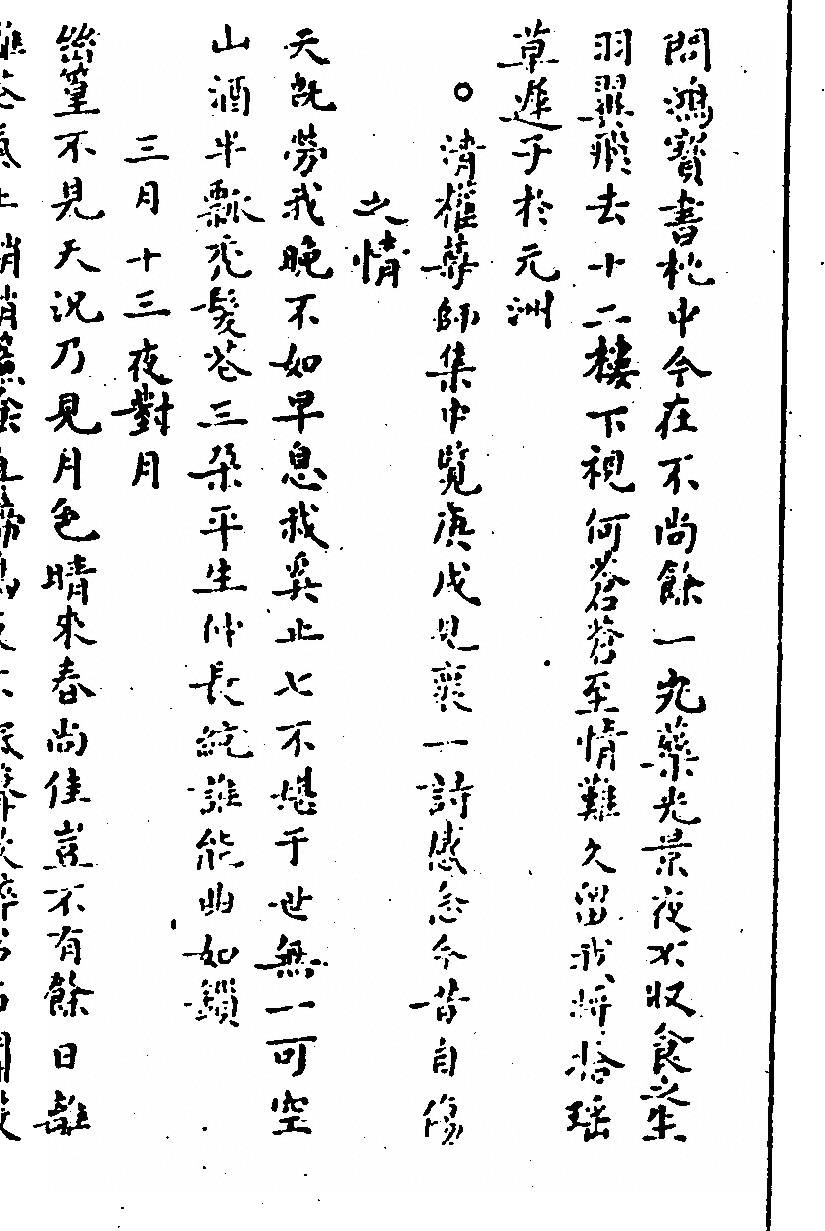 問鴻寶書枕中今在不尚餘一丸藥光景夜不收食之生
羽翼飛去十二樓下視何蒼蒼至情難久留我將拾瑤
草遲子於元洲
○清權華師集中覽庚戌見襄一詩感念今昔自傷
之情
天既勞我晚不如早息我奚止七不堪于世無一可空
山酒半瓢禿髮花三朶平生仲長統誰能曲如鎖
三月十三夜對月
篁不見天況乃見月色晴來春尚佳豈不有餘日離